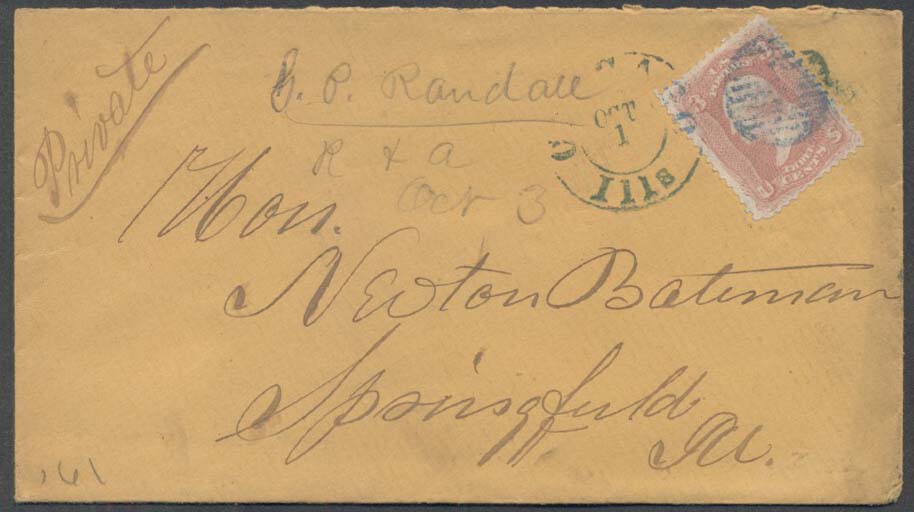 Private
G. P. Randall
R & a
Oct 3
OCT
1
Ills
Hon.
Newton Bateman
Springfield
Ill.
U. S. POSTAGE
3
THREE CENTS
U S